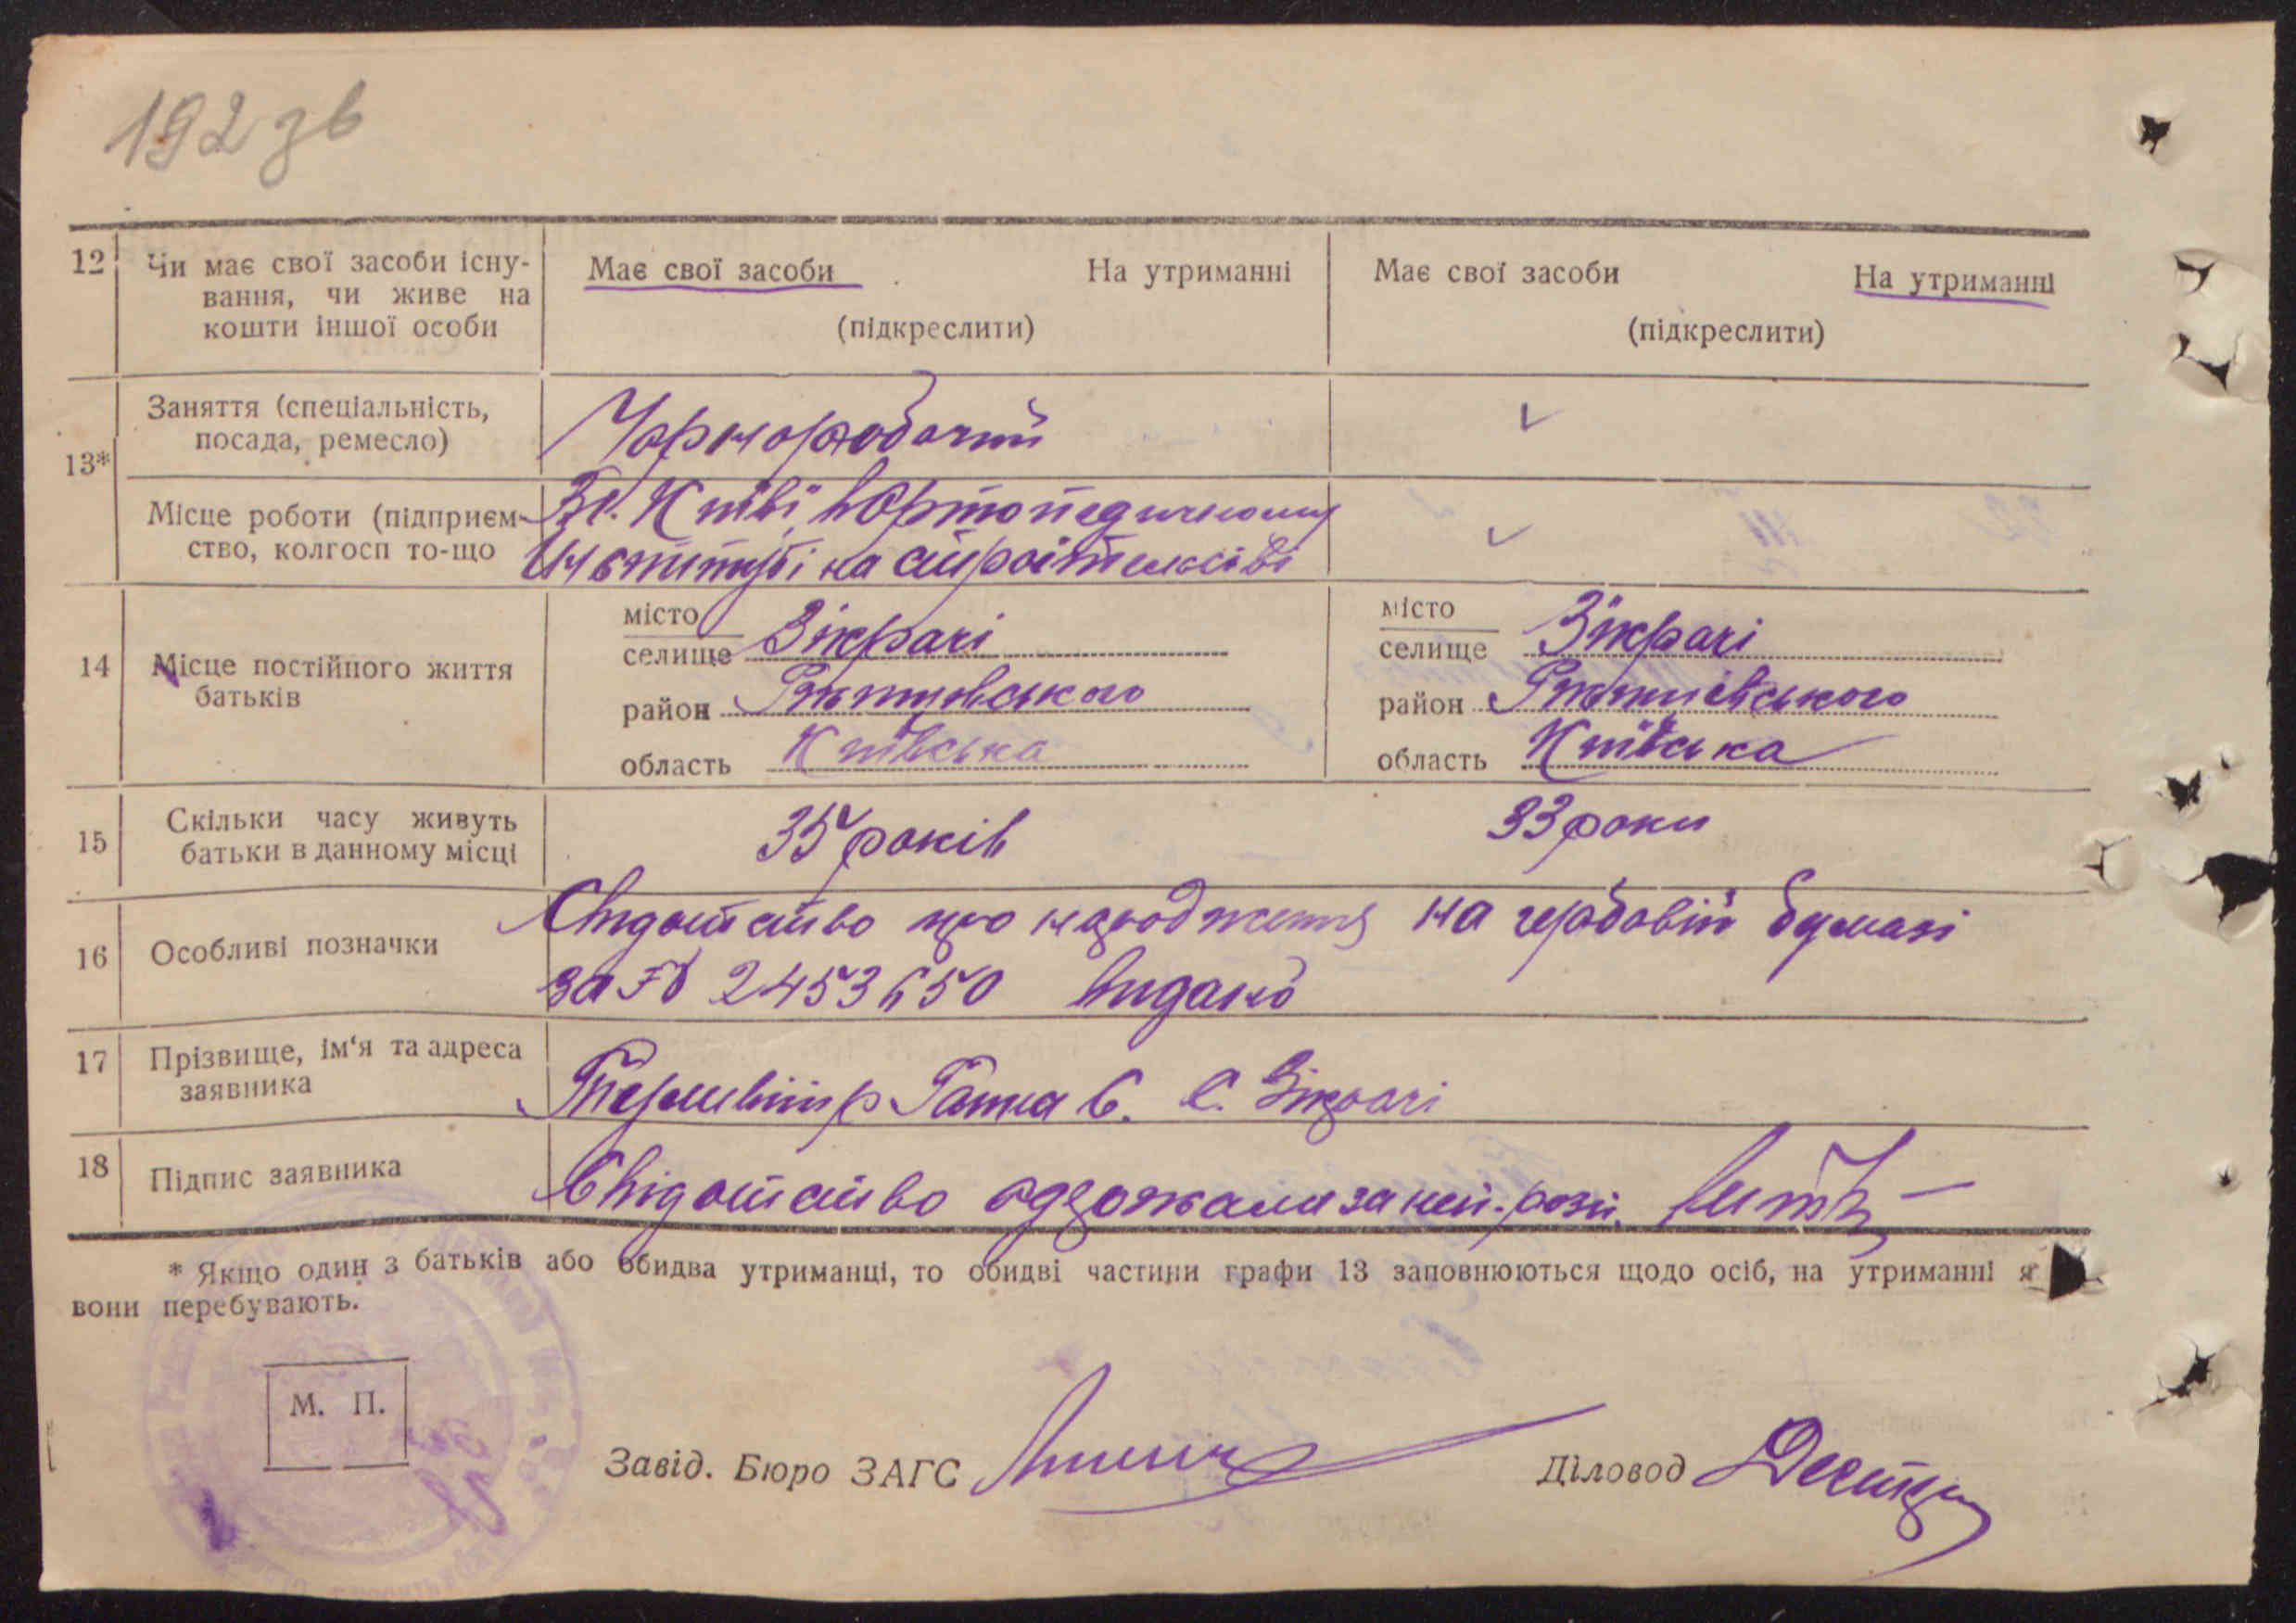 192 зв
12 Чи має свої засоби існу-
вання, чи живе на
кошти іншої особи
Має свої засоби На утриманні
(підкреслити)
Має свої засоби На утриманні
(підкреслити)
13* Заняття (спеціальність,
посада, ремесло)
Чорноробочий
Місце роботи (підприєм-
ство, колгосп то-що
Києві в Ортопедичному
Институті на строітельстві
14 Місце постійного життя
батьків
місто
селище Зікрачі
район Ржищівського
область Київська
місто
селище Зікрачі
район Ржищівського
область Київська
15 Скільки часу живуть
батьки в данному місці
35 років
33 роки
16 Особливі позначки
Свідотство про народження на гербовій бумазі
за № 2453650 видано
17 Прізвище, ім'я та адреса
заявника
Ганна С. с. Зікрачі
18 Підпис заявника
Свідотство одержала за неп. розп.
* Якщо один з батьків або обидва утриманці, то обидві частини графи 13 заповнюються щодо осіб, на утриманні
вони перебувають.
М. П.
Завід. Бюро ЗАГС
Діловод